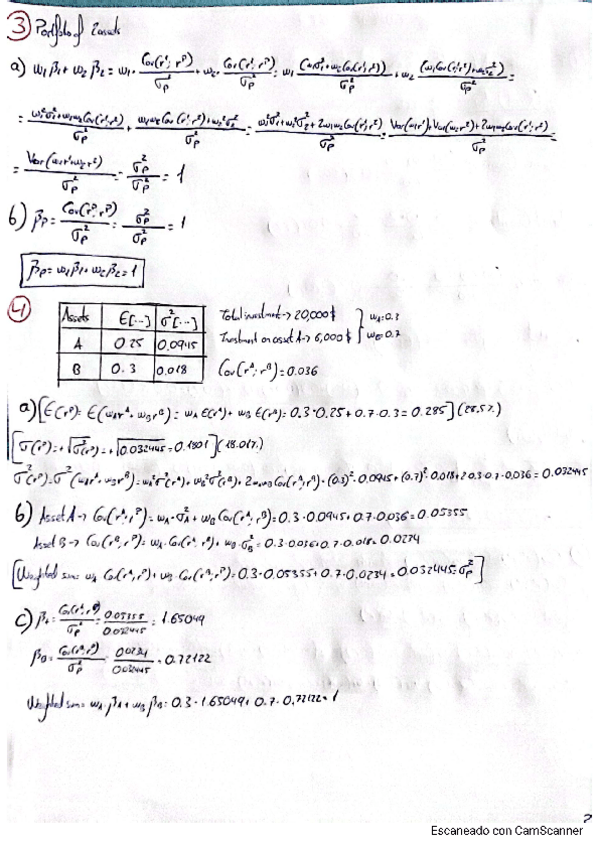 ③ Portfolio of 2 assets
a) w₁β₁ + w₂β₂ = w₁ · Cov(r¹; rᴾ)/σₚ² + w₂ · Cov(r²; rᴾ)/σₚ² = w₁ (w₁σ₁² + w₂Cov(r¹; r²))/σₚ² + w₂ (w₁Cov(r¹; r²) + w₂σ₂²)/σₚ² =
= w₁²σ₁² + w₁w₂Cov(r¹; r²)/σₚ² + w₁w₂Cov(r¹; r²) + w₂²σ₂²/σₚ² = w₁²σ₁² + w₂²σ₂² + 2w₁w₂Cov(r¹; r²)/σₚ² = Var(w₁r¹) + Var(w₂r²) + 2w₁w₂Cov(r¹; r²)/σₚ² =
= Var(w₁r¹ + w₂r²)/σₚ² = σₚ²/σₚ² = 1
b) βₚ = Cov(rᴾ; rᴾ)/σₚ² = σₚ²/σₚ² = 1
βₚ = w₁β₁ + w₂β₂ = 1
④
Assets E[...] σ²[...]
A 0.25 0.0945
B 0.3 0.018
Total investment → 20,000$
Investment on asset A → 6,000$
wA = 0.3
wB = 0.7
Cov(rᴬ; rᴮ) = 0.036
a) [E(rᴾ) = E(wA rᴬ + wB rᴮ) = wA E(rᴬ) + wB E(rᴮ) = 0.3 · 0.25 + 0.7 · 0.3 = 0.285] (28.5%)
[σ(rᴾ) = +√σ²(rᴾ) = +√0.032445 = 0.1801] (18.01%)
σ²(rᴾ) = σ²(wA rᴬ + wB rᴮ) = wA²σ²(rᴬ) + wB²σ²(rᴮ) + 2wAwB Cov(rᴬ; rᴮ) = (0.3)² · 0.0945 + (0.7)² · 0.018 + 2 · 0.3 · 0.7 · 0.036 = 0.032445
b) Asset A → Cov(rᴬ; rᴾ) = wA · σA² + wB Cov(rᴬ; rᴮ) = 0.3 · 0.0945 + 0.7 · 0.036 = 0.05355
Asset B → Cov(rᴮ; rᴾ) = wA · Cov(rᴬ; rᴮ) + wB · σB² = 0.3 · 0.036 + 0.7 · 0.018 = 0.0234
[Weighted sum = wA Cov(rᴬ; rᴾ) + wB · Cov(rᴮ; rᴾ) = 0.3 · 0.05355 + 0.7 · 0.0234 = 0.032445 = σₚ²]
c) βA = Cov(rᴬ; rᴾ)/σₚ² = 0.05355/0.032445 = 1.65049
βB = Cov(rᴮ; rᴾ)/σₚ² = 0.0234/0.032445 = 0.72122
Weighted sum = wA · βA + wB βB = 0.3 · 1.65049 + 0.7 · 0.72122 = 1
Escaneado con CamScanner